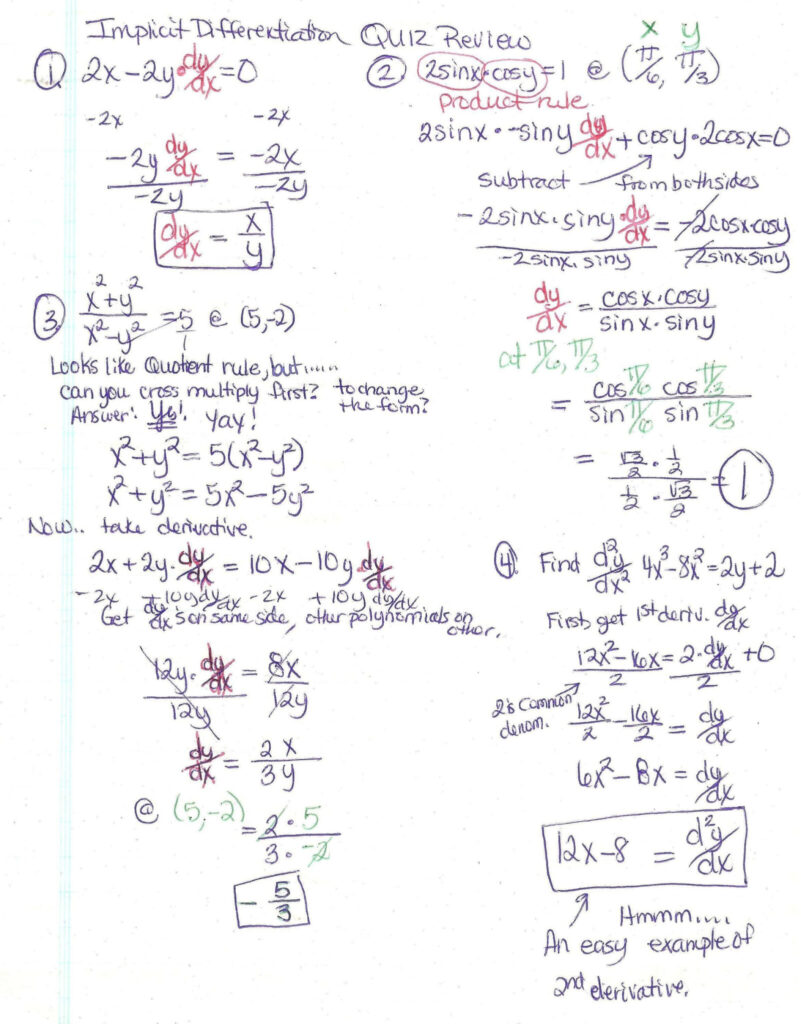 Implicit Differentiation Quiz Review
① 2x - 2y · dy/dx = 0
-2x -2x
-2y dy/dx / -2y = -2x / -2y
dy/dx = x/y
x y
② 2sinx · cosy = 1 @ (π/6, π/3)
product rule
2sinx · -siny dy/dx + cosy · 2cosx = 0
subtract from both sides
-2sinx · siny · dy/dx / -2sinx · siny = -2cosx · cosy / -2sinx · siny
dy/dx = cosx · cosy / sinx · siny
at π/6, π/3
= cos π/6 cos π/3 / sin π/6 sin π/3
= √3/2 · 1/2 / 1/2 · √3/2 = 1
③ x² + y² / x² - y² = 5/1 @ (5, -2)
Looks like Quotient rule, but.....
can you cross multiply first? to change the form?
Answer: Yes! Yay!
x² + y² = 5(x² - y²)
x² + y² = 5x² - 5y²
Now.. take derivative.
2x + 2y · dy/dx = 10x - 10y · dy/dx
-2x + 10y dy/dx -2x + 10y dy/dx
Get dy/dx's on same side, other polynomials on other.
12y · dy/dx / 12y = 8x / 12y
dy/dx = 2x / 3y
@ (5, -2)
= 2 · 5 / 3 · -2
- 5/3
④ Find d²y/dx² 4x³ - 8x² = 2y + 2
First, get 1st deriv. dy/dx
12x² - 16x / 2 = 2 · dy/dx / 2 + 0
2 is common denom.
12x²/2 - 16x/2 = dy/dx
6x² - 8x = dy/dx
12x - 8 = d²y/dx
Hmmm....
An easy example of
2nd derivative.